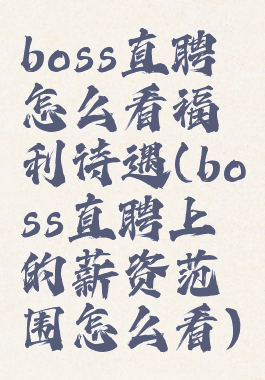 boss直聘
怎么看福
利待遇(bo
ss直聘上
的薪资范
围怎么看)